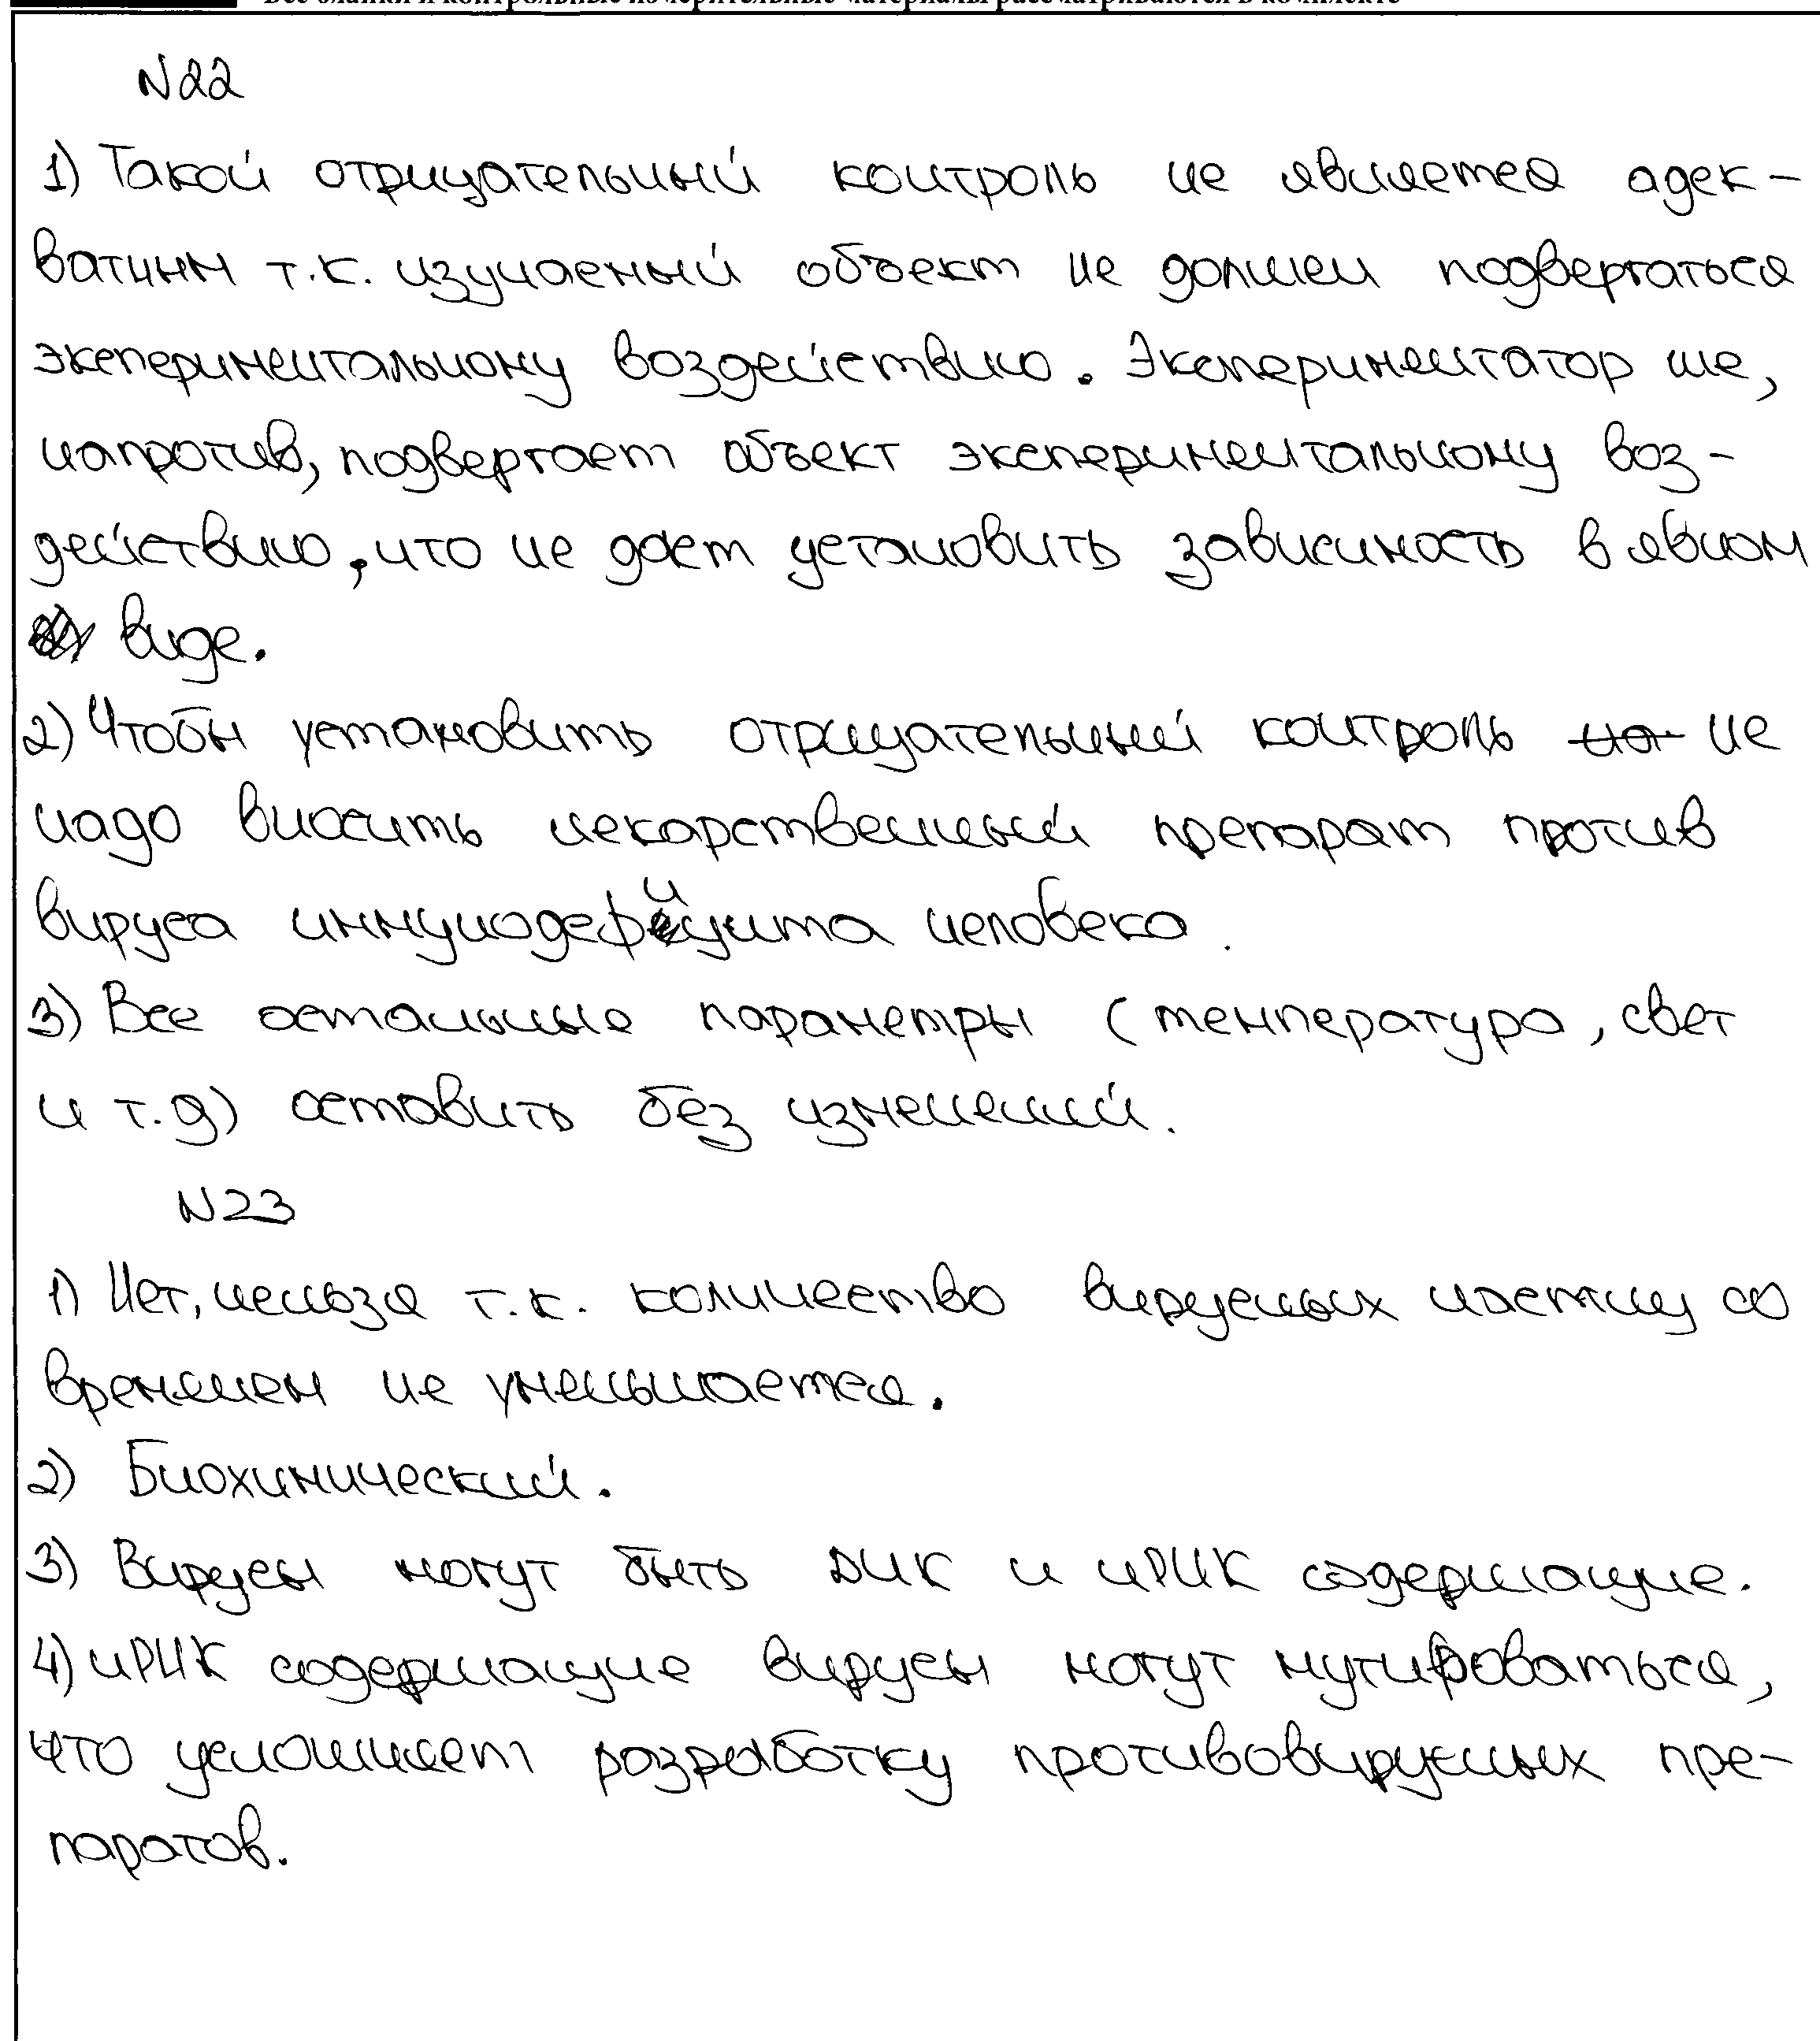 Все бланки и контрольные измерительные материалы рассматриваются в комплекте
N22
1) Такой отрицательный контроль не является адек-
ватным т.к. изучаемый объект не должен подвергаться
экспериментальному воздействию. Экспериментатор же,
напротив, подвергает объект экспериментальному воз-
действию, что не дает установить зависимость в явном
виде.
2) Чтобы установить отрицательный контроль на не
надо вносить лекарственный препарат против
вируса иммунодефицита человека.
3) Все остальные параметры (температура, свет
и т.д) оставить без изменений.
N23
1) Нет, нельзя т.к. количество вирусных частиц со
временем не уменьшается.
2) Биохимический.
3) Вирусы могут быть ДНК и иРНК содержащие.
4) иРНК содержащие вирусы могут мутироваться,
что усложняет разработку противовирусных пре-
паратов.